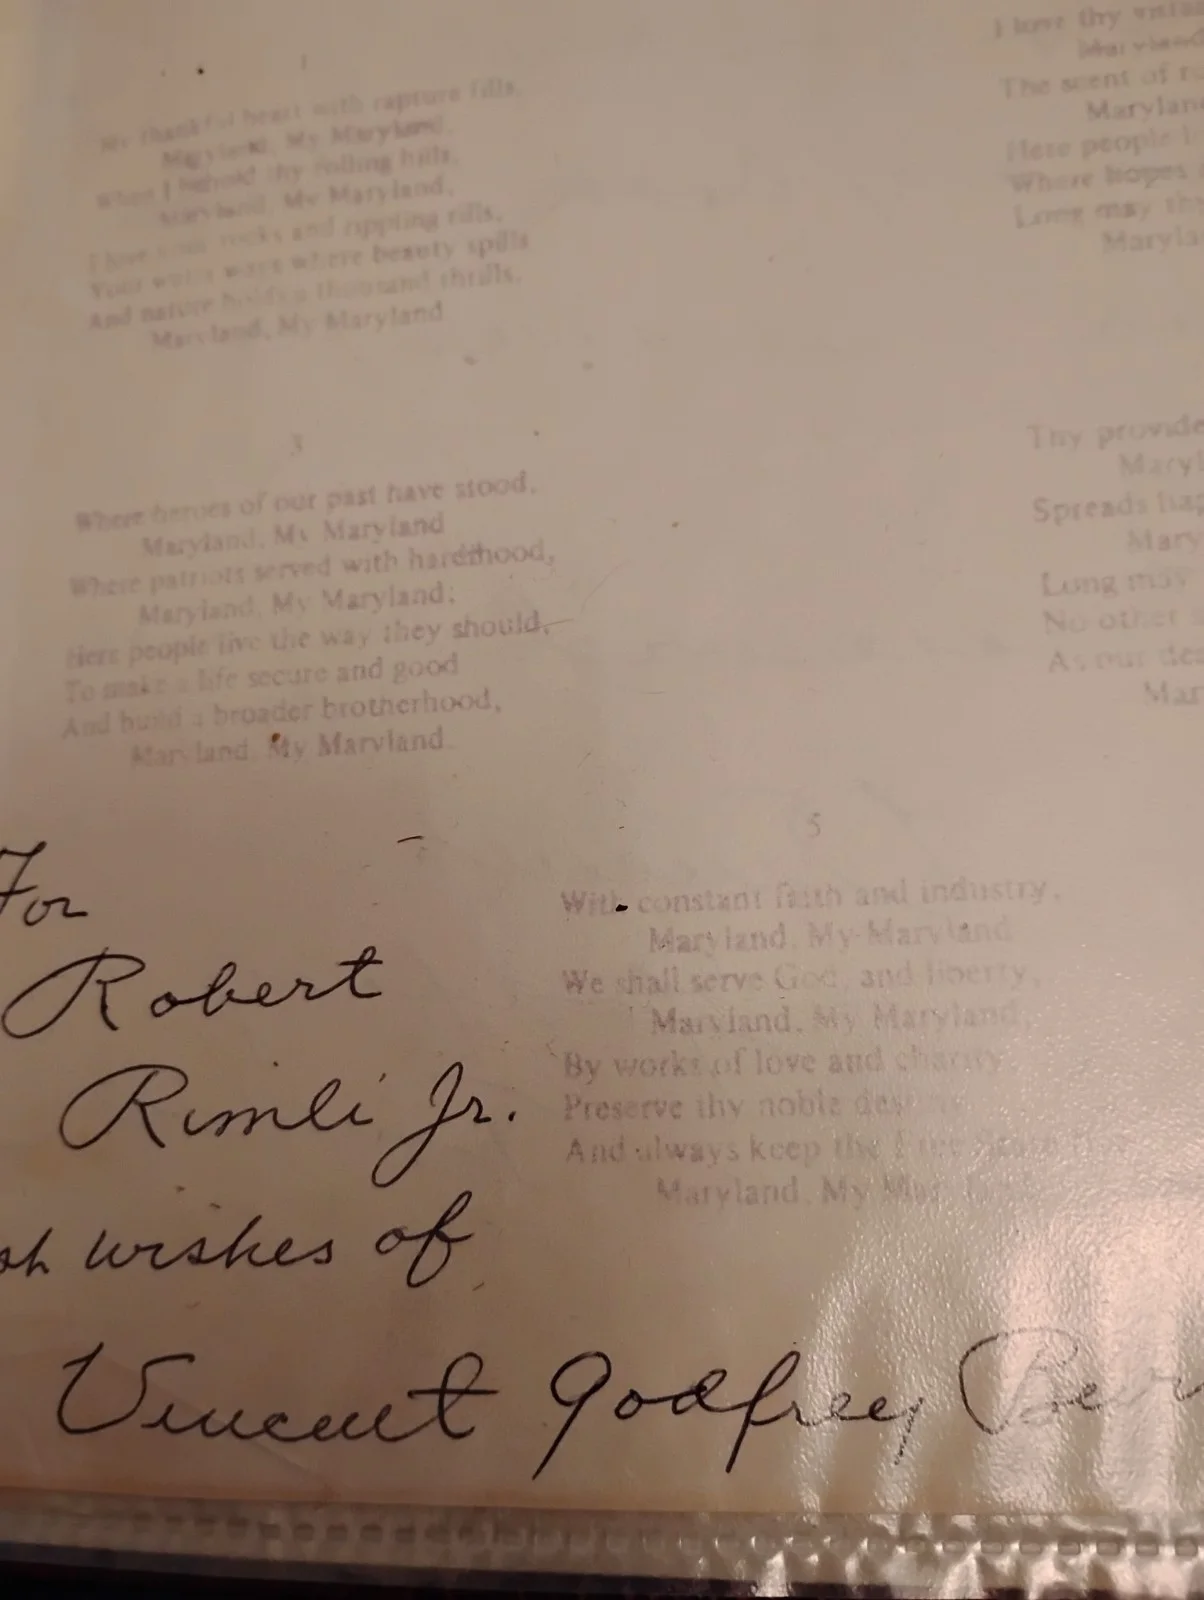 1
My thankful heart with rapture fills,
Maryland, My Maryland,
When I behold thy rolling hills,
Maryland, My Maryland,
I love your rocks and rippling rills,
Your water ways where beauty spills
And nature holds a thousand thrills,
Maryland, My Maryland
I love thy
Maryland
The scent of
Maryland
Here people
Where hopes
Long may thy
3
Where heroes of our past have stood,
Maryland, My Maryland
Where patriots served with hardihood,
Maryland, My Maryland;
Here people live the way they should,
To make a life secure and good
And build a broader brotherhood,
Maryland, My Maryland.
Thy
Spreads
Long may
No other
As our
5
With constant faith and industry,
Maryland, My Maryland
We shall serve God, and liberty,
Maryland, My Maryland,
By works of love and charity,
Preserve thy noble
And always keep the Free State
Maryland, My
For
Robert
Rimli Jr.
wishes of
Vincent Godfrey